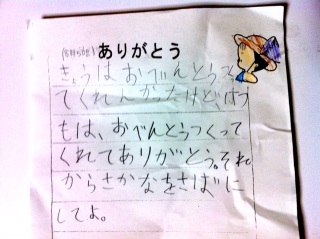 ありがとう
きょうはおべんとうつく
てくれんかったけど、いつ
もは、おべんとうつくって
くれてありがとう。それ
からさかなをさばに
してよ。